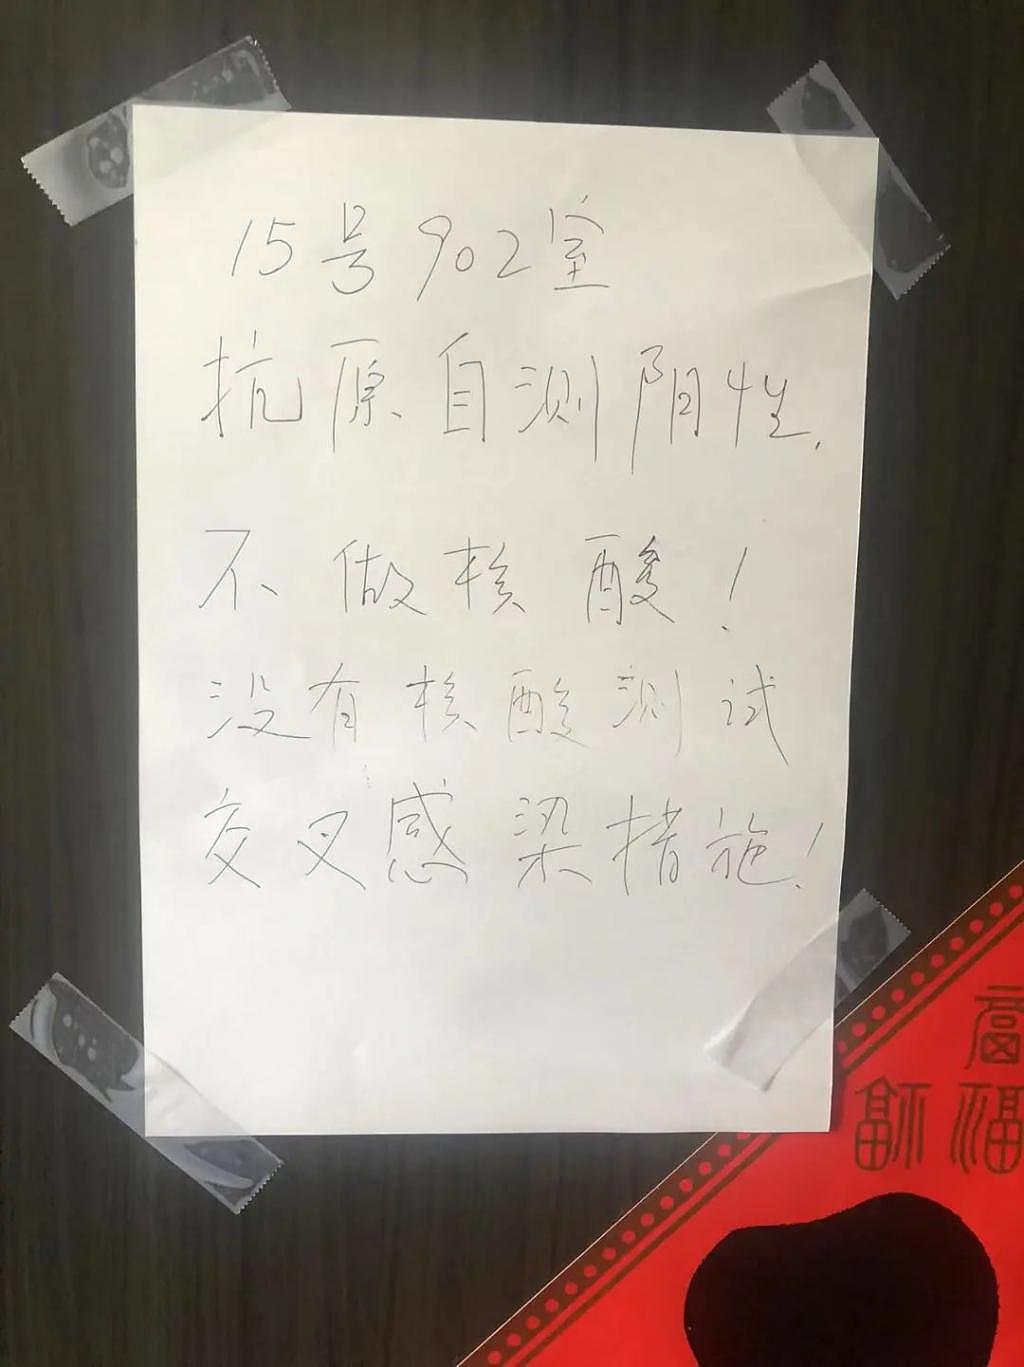 15号902室
抗原自测阴性.
不做核酸!
没有核酸测试
交叉感染措施!
福